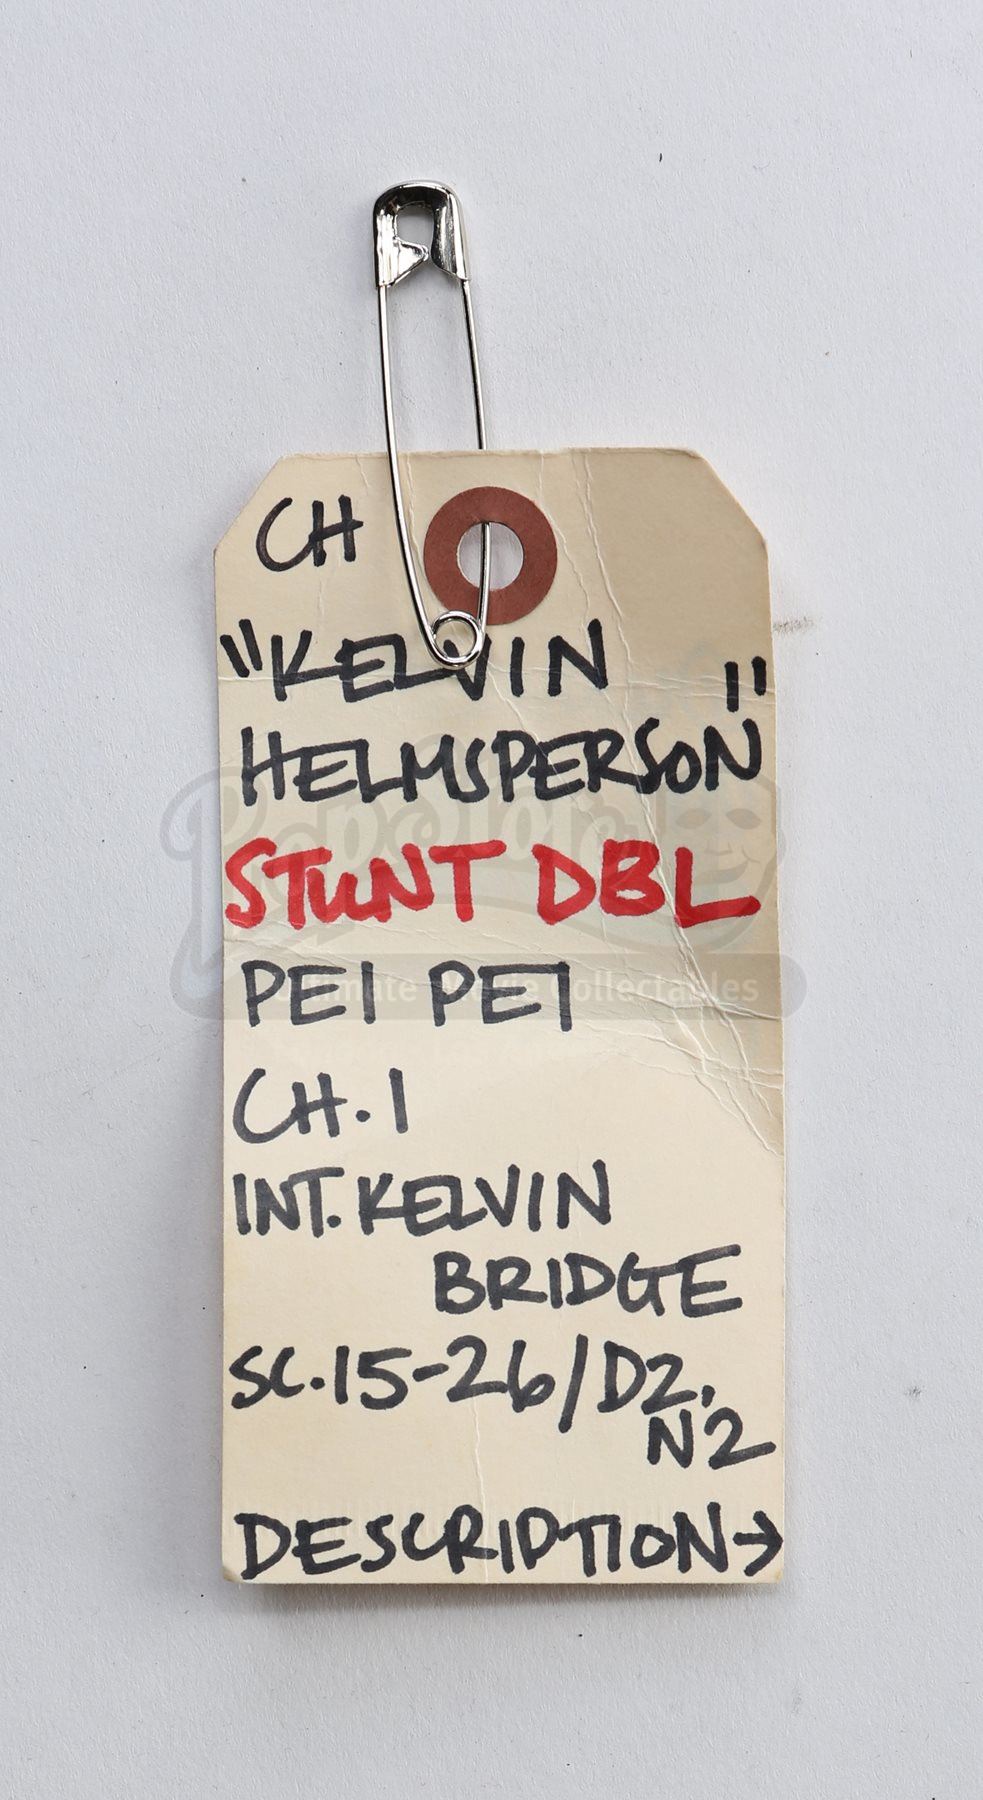 CH
"KELVIN
HELMSPERSON"
STUNT DBL
PEI PEI
CH. 1
INT. KELVIN
BRIDGE
SC. 15-26/D2,
N2
DESCRIPTION→
Propstore
Ultimate Movie Collectables